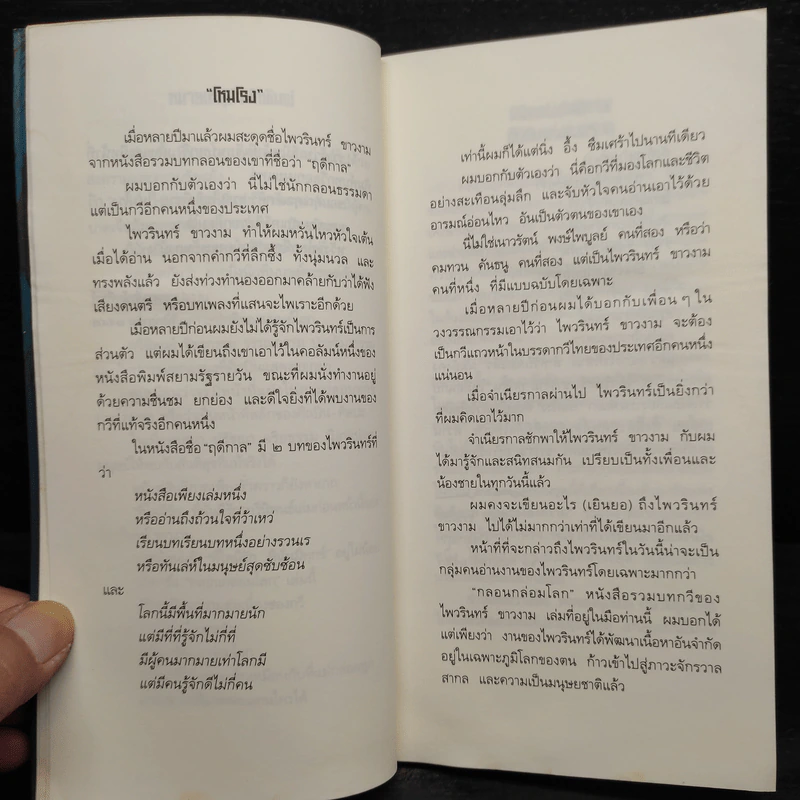 "โหมโรง"
เมื่อหลายปีมาแล้วผมสะดุดชื่อไพวรินทร์ ขาวงาม
จากหนังสือรวมบทกลอนของเขาที่ชื่อว่า "ฤดีกาล"
ผมบอกกับตัวเองว่า นี่ไม่ใช่นักกลอนธรรมดา
แต่เป็นกวีอีกคนหนึ่งของประเทศ
ไพวรินทร์ ขาวงาม ทำให้ผมหวั่นไหวหัวใจเต้น
เมื่อได้อ่าน นอกจากคำกวีที่ลึกซึ้ง ทั้งนุ่มนวล และ
ทรงพลังแล้ว ยังส่งท่วงทำนองออกมาคล้ายกับว่าได้ฟัง
เสียงดนตรี หรือบทเพลงที่แสนจะไพเราะอีกด้วย
เมื่อหลายปีก่อนผมยังไม่ได้รู้จักไพวรินทร์เป็นการ
ส่วนตัว แต่ผมได้เขียนถึงเขาเอาไว้ในคอลัมน์หนึ่งของ
หนังสือพิมพ์สยามรัฐรายวัน ขณะที่ผมนั่งทำงานอยู่
ด้วยความชื่นชม ยกย่อง และดีใจยิ่งที่ได้พบงานของ
กวีที่แท้จริงอีกคนหนึ่ง
ในหนังสือชื่อ "ฤดีกาล" มี ๒ บทของไพวรินทร์ที่
ว่า
หนังสือเพียงเล่มหนึ่ง
หรืออ่านถึงถ้วนใจที่ว้าเหว่
เรียนบทเรียนบทหนึ่งอย่างรวนเร
หรือทันเล่ห์ในมนุษย์สุดซับซ้อน
และ
โลกนี้มีพื้นที่มากมายนัก
แต่มีที่ที่รู้จักไม่กี่ที่
มีผู้คนมากมายเท่าโลกมี
แต่มีคนรู้จักดีไม่กี่คน
เท่านี้ผมก็ได้แต่นิ่ง อึ้ง ซึมเศร้าไปนานทีเดียว
ผมบอกกับตัวเองว่า นี่คือกวีที่มองโลกและชีวิต
อย่างสะเทือนลุ่มลึก และจับหัวใจคนอ่านเอาไว้ด้วย
อารมณ์อ่อนไหว อันเป็นตัวตนของเขาเอง
นี่ไม่ใช่เนาวรัตน์ พงษ์ไพบูลย์ คนที่สอง หรือว่า
คมทวน คันธนู คนที่สอง แต่เป็นไพวรินทร์ ขาวงาม
คนที่หนึ่ง ที่มีแบบฉบับโดยเฉพาะ
เมื่อหลายปีก่อนผมได้บอกกับเพื่อนๆ ใน
วงวรรณกรรมเอาไว้ว่า ไพวรินทร์ ขาวงาม จะต้อง
เป็นกวีแถวหน้าในบรรดากวีไทยของประเทศอีกคนหนึ่ง
แน่นอน
เมื่อจำเนียรกาลผ่านไป ไพวรินทร์เป็นยิ่งกว่า
ที่ผมคิดเอาไว้มาก
จำเนียรกาลชักพาให้ไพวรินทร์ ขาวงาม กับผม
ได้มารู้จักและสนิทสนมกัน เปรียบเป็นทั้งเพื่อนและ
น้องชายในทุกวันนี้แล้ว
ผมคงจะเขียนอะไร (เยินยอ) ถึงไพวรินทร์
ขาวงาม ไปได้ไม่มากกว่าเท่าที่ได้เขียนมาอีกแล้ว
หน้าที่ที่จะกล่าวถึงไพวรินทร์ในวันนี้น่าจะเป็น
กลุ่มคนอ่านงานของไพวรินทร์โดยเฉพาะมากกว่า
"กลอนกล่อมโลก" หนังสือรวมบทกวีของ
ไพวรินทร์ ขาวงาม เล่มที่อยู่ในมือท่านนี้ ผมบอกได้
แต่เพียงว่า งานของไพวรินทร์ได้พัฒนาเนื้อหาอันจำกัด
อยู่ในเฉพาะภูมิโลกของตน ก้าวเข้าไปสู่ภาวะจักรวาล
สากล และความเป็นมนุษยชาติแล้ว